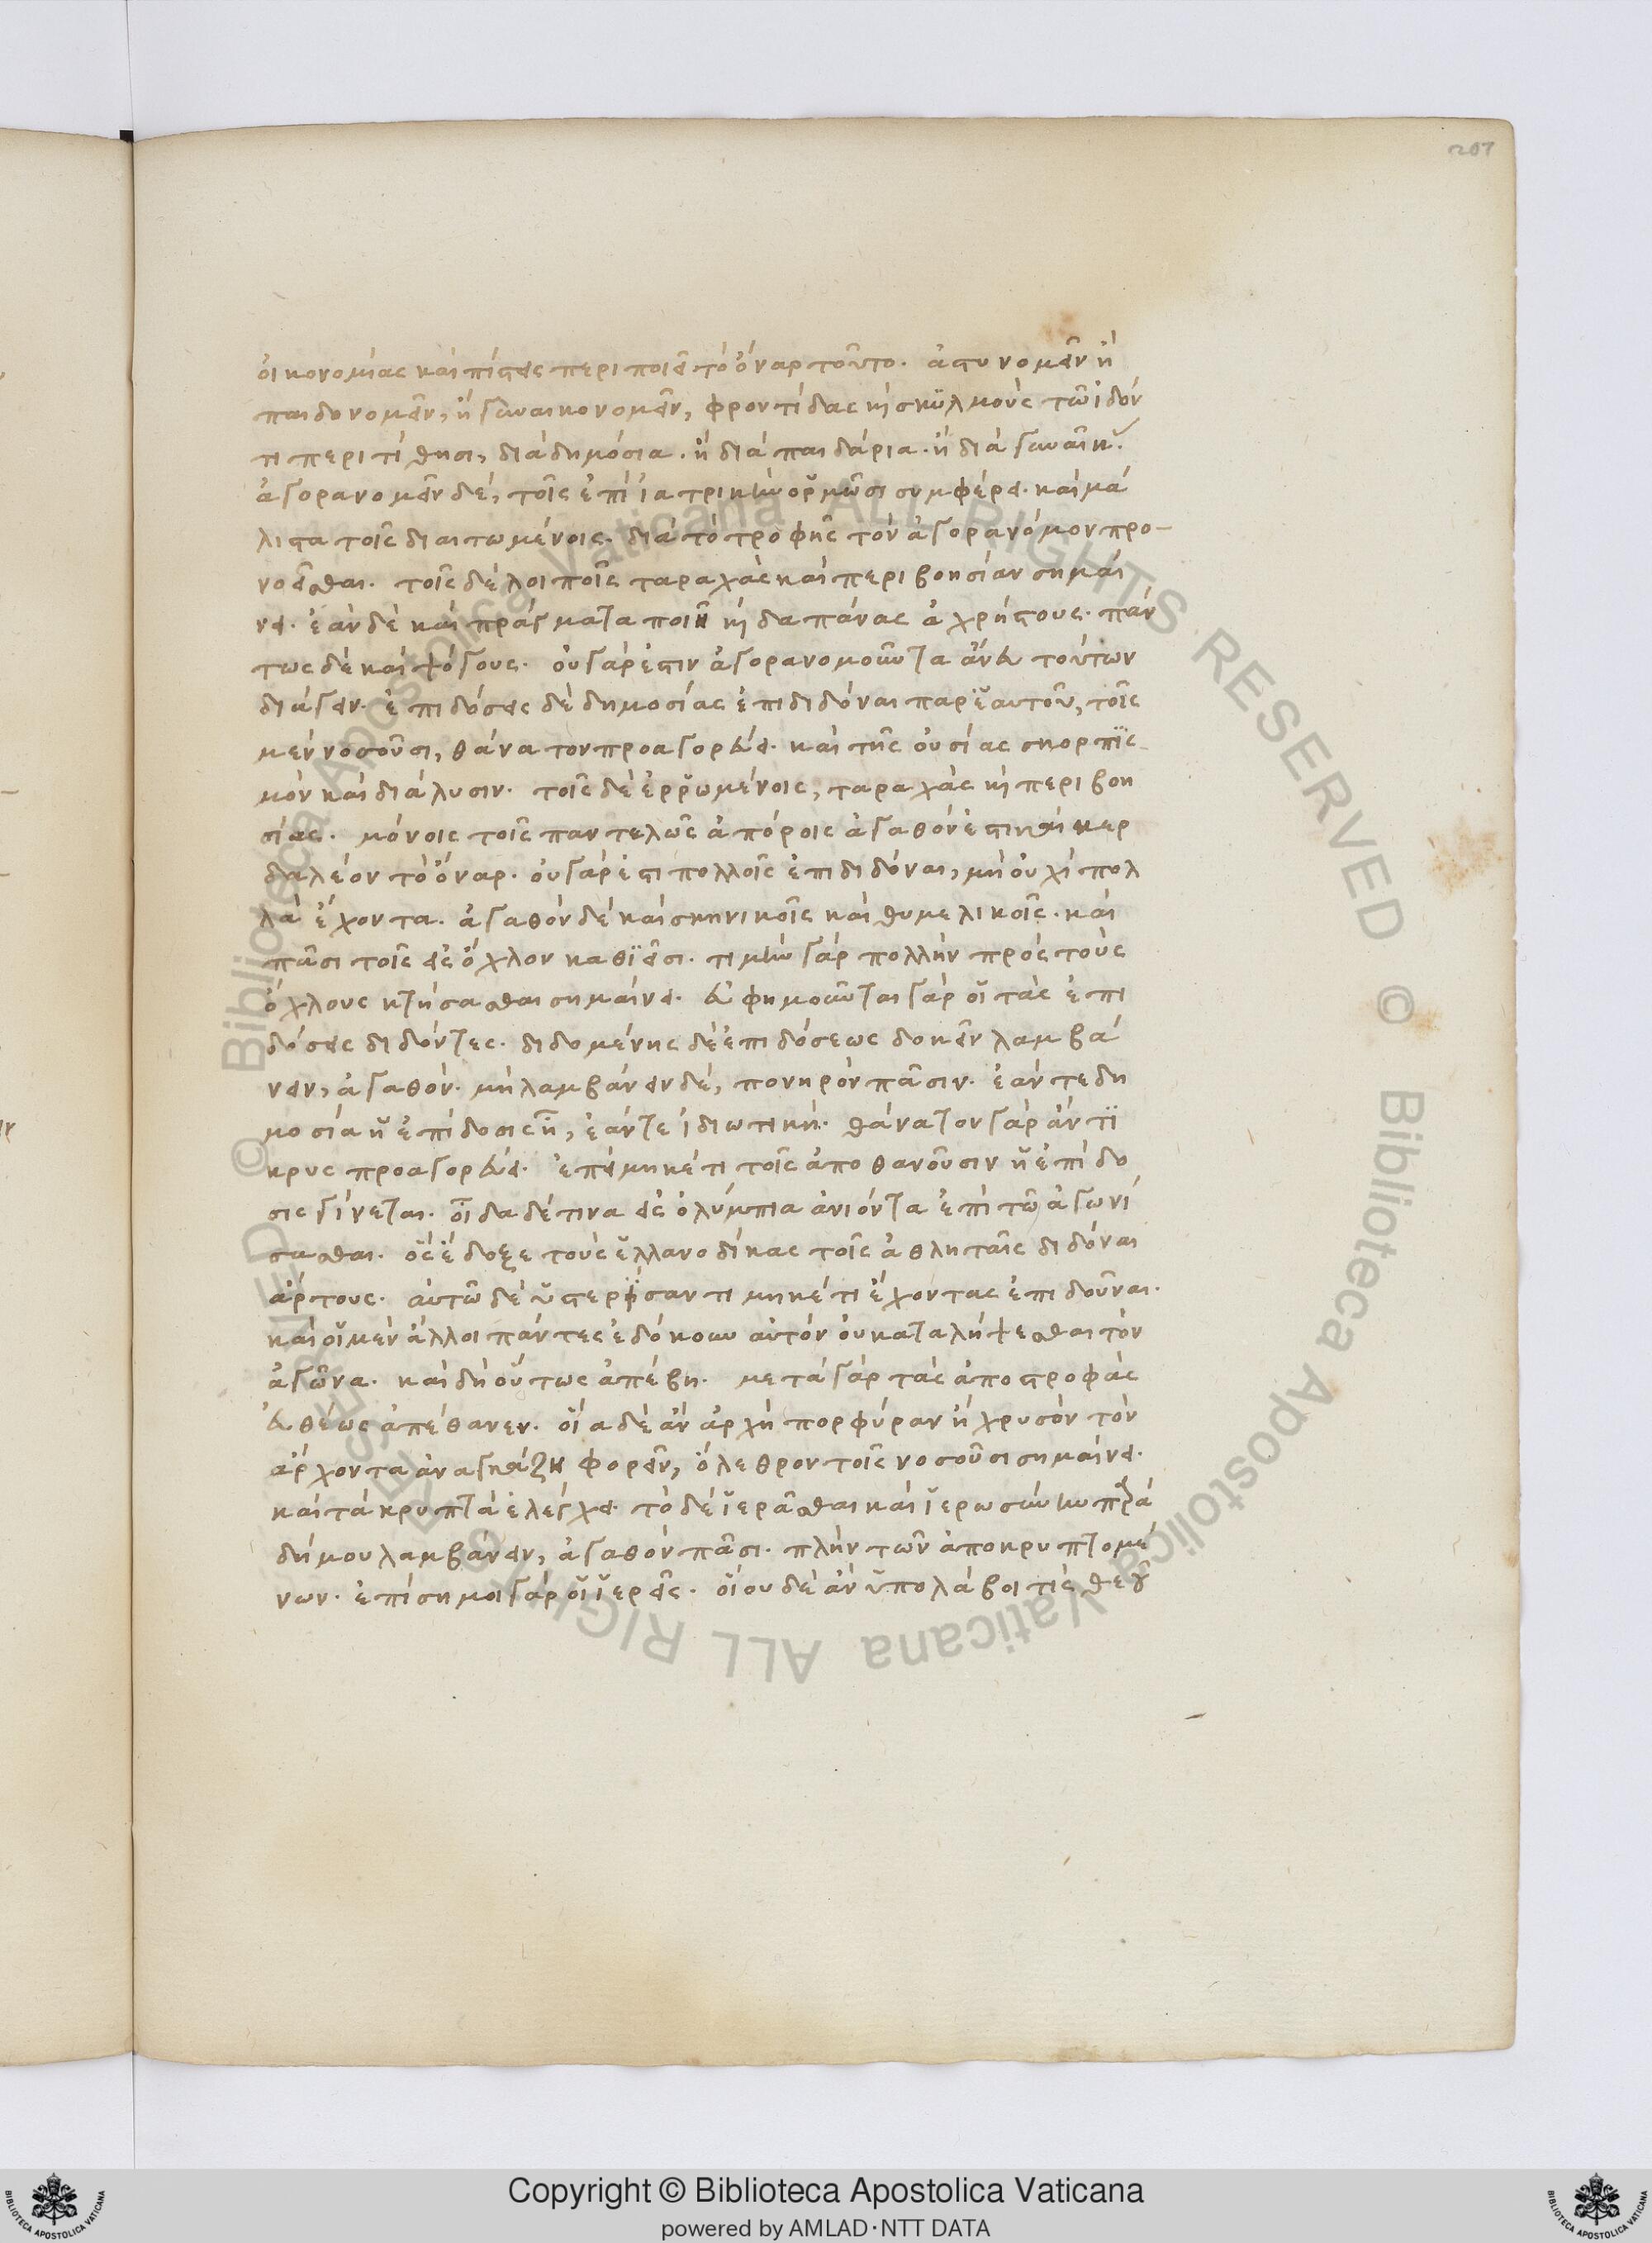 207
οἰκονομίας καὶ πίστεις περιποιεῖ τὸ ὄναρ τοῦτο. ἀστυνομεῖν ἢ
παιδονομεῖν, ἢ γυναικονομεῖν, φροντίδας κὶ σκυλμοὺς τῶ ἰδόν
τι περιτίθησι, διὰ δημόσια. ἢ διὰ παιδάρια. ἢ διὰ γυναῖκ
ἀγορανομεῖν δὲ, τοῖς ἐπὶ ἰατρικὴν ὁρμῶσι συμφέρει. καὶ μά
λιστα τοῖς διαιτωμένοις. διὰ τὸ τροφῆς τὸν ἀγορανόμον προ-
νοεῖσθαι. τοῖς δὲ λοιποῖς ταραχὰς καὶ περιβοησίαν σημαί
νει. ἐὰν δὲ καὶ πράγματα ποιῆ κὶ δαπάνας ἀχρήστους. πάν
τως δὲ καὶ ψόγους. οὐ γάρ ἐστιν ἀγορανομοῦντα ἄνευ τούτων
διάγειν. ἐπιδόσεις δὲ δημοσίας ἐπιδιδόναι παρ' ἑαυτοῦ, τοῖς
μὲν νοσοῦσι, θάνατον προαγορεύει. καὶ τῆς οὐσίας σκορπισ
μὸν καὶ διάλυσιν. τοῖς δὲ ἐρρωμένοις, ταραχὰς κὶ περιβοη
σίας. μόνοις τοῖς παντελῶς ἀπόροις ἀγαθόν ἐστι καὶ κερ
δαλέον τὸ ὄναρ. οὐ γάρ ἐστι πολλοῖς ἐπιδιδόναι, μὴ οὐχὶ πολ
λὰ ἔχοντα. ἀγαθὸν δὲ καὶ σκηνικοῖς καὶ θυμελικοῖς. καὶ
πᾶσι τοῖς εἰς ὄχλον καθιεῖσι. τιμὴν γὰρ πολλὴν πρὸς τοὺς
ὄχλους κτήσασθαι σημαίνει. εὐφημοῦνται γὰρ οἱ τὰς ἐπι
δόσεις διδόντες. διδομένης δὲ ἐπιδόσεως δοκεῖν λαμβά
νειν, ἀγαθόν. μὴ λαμβάνειν δὲ, πονηρὸν πᾶσιν. ἐάν τε δη
μοσία ἡ ἐπίδοσις ἦ, ἐάν τε ἰδιωτική. θάνατον γὰρ ἄντι
κρυς προαγορεύει. ἐπεὶ μηκέτι τοῖς ἀποθανοῦσιν ἡ ἐπίδο
σις γίνεται. οἶδα δέ τινα εἰς ὀλύμπια ἀνιόντα ἐπὶ τῶ ἀγωνί
σασθαι. ὃς ἔδοξε τοὺς ἑλλανοδίκας τοῖς ἀθληταῖς διδόναι
ἄρτους. αὐτῶ δὲ ὑστερήσαντι μηκέτι ἔχοντας ἐπιδοῦναι.
καὶ οἱ μὲν ἄλλοι πάντες ἐδόκουν αὐτὸν οὐ καταλήψεσθαι τὸν
ἀγῶνα. καὶ δὴ οὕτως ἀπέβη. μετὰ γὰρ τὰς ἀποστροφὰς
εὐθέως ἀπέθανεν. οἵα δὲ ἂν ἀρχὴ πορφύραν ἢ χρυσὸν τὸν
ἄρχοντα ἀναγκάζη φορεῖν, ὄλεθρον τοῖς νοσοῦσι σημαίνει.
καὶ τὰ κρυπτὰ ἐλέγχει. τὸ δὲ ἱερᾶσθαι καὶ ἱερωσύνην παρὰ
δήμου λαμβάνειν, ἀγαθὸν πᾶσι. πλὴν τῶν ἀποκρυπτομέ
νων. ἐπίσημοι γὰρ οἱ ἱερεῖς. οἵου δὲ ἂν ὑπολάβοι τὶς θεοῦ
Copyright © Biblioteca Apostolica Vaticana
powered by AMLAD·NTT DATA